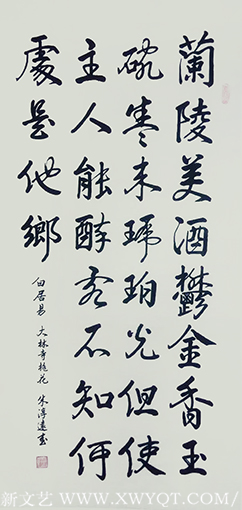 蘭陵美酒鬱金香玉
碗盛来琥珀光但使
主人能醉客不知何
處是他鄉
白居易 大林寺桃花 朱淳遠書
新文艺 WWW.XWYQT.COM